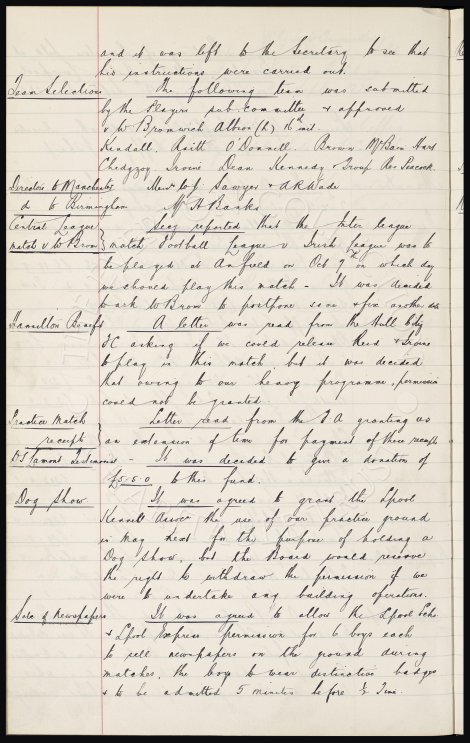 and it was left to the Secretary to see that
his instructions were carried out.
Team Selection The following team was submitted
by the Players sub-committee & approved
v W Bromwich Albion (h) 16th inst.
Kendall, Raitt O'Donnell. Brown McBain Hart
Chedgzoy Irvine Dean Kennedy & Troup Res Peacock.
Directors to Manchester Messrs W J Sawyer & A R Wade
do to Birmingham Mr H Banks
Central League Secy reported that the Inter league
match v W Brom match Football League v Irish League was to
be played at Anfield on Oct 9th on which day
we should play this match - It was decided
to ask W Brom to postpone same & fix another date
Hamilton Benefit A letter was read from the Hull City
FC asking if we could release Reid & Irvine
to play in this match but it was decided
that owing to our heavy programme, permission
could not be granted.
Practice Match Letter read from the F A granting us
receipts an extension of time for payment of these receipts
Testimonial - It was decided to give a donation of
£5-5-0 to this fund.
Dog Show It was agreed to grant the Lpool
Kennel Assocn the use of our practice ground
in May next for the purpose of holding a
Dog Show, but the Board would reserve
the right to withdraw the permission if we
were to undertake any building operations.
Sale of Newspapers It was agreed to allow the Lpool Echo
& Lpool Express permission for 6 boys each
to sell newspapers on the ground during
matches, the boys to wear distinctive badges
& to be admitted 5 minutes before ½ Time.